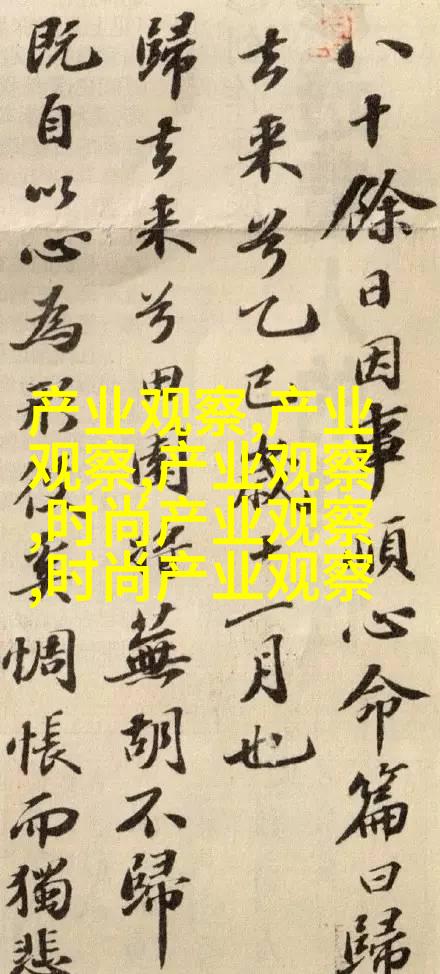 八十餘日因事順心命篇曰歸
去来兮乙巳歲十一月也
歸去来兮田園將蕪胡不歸
既自以心為形役奚惆悵而獨悲
产业观察,产业
观察,产业观察
,时尚产业观察
,时尚产业观察